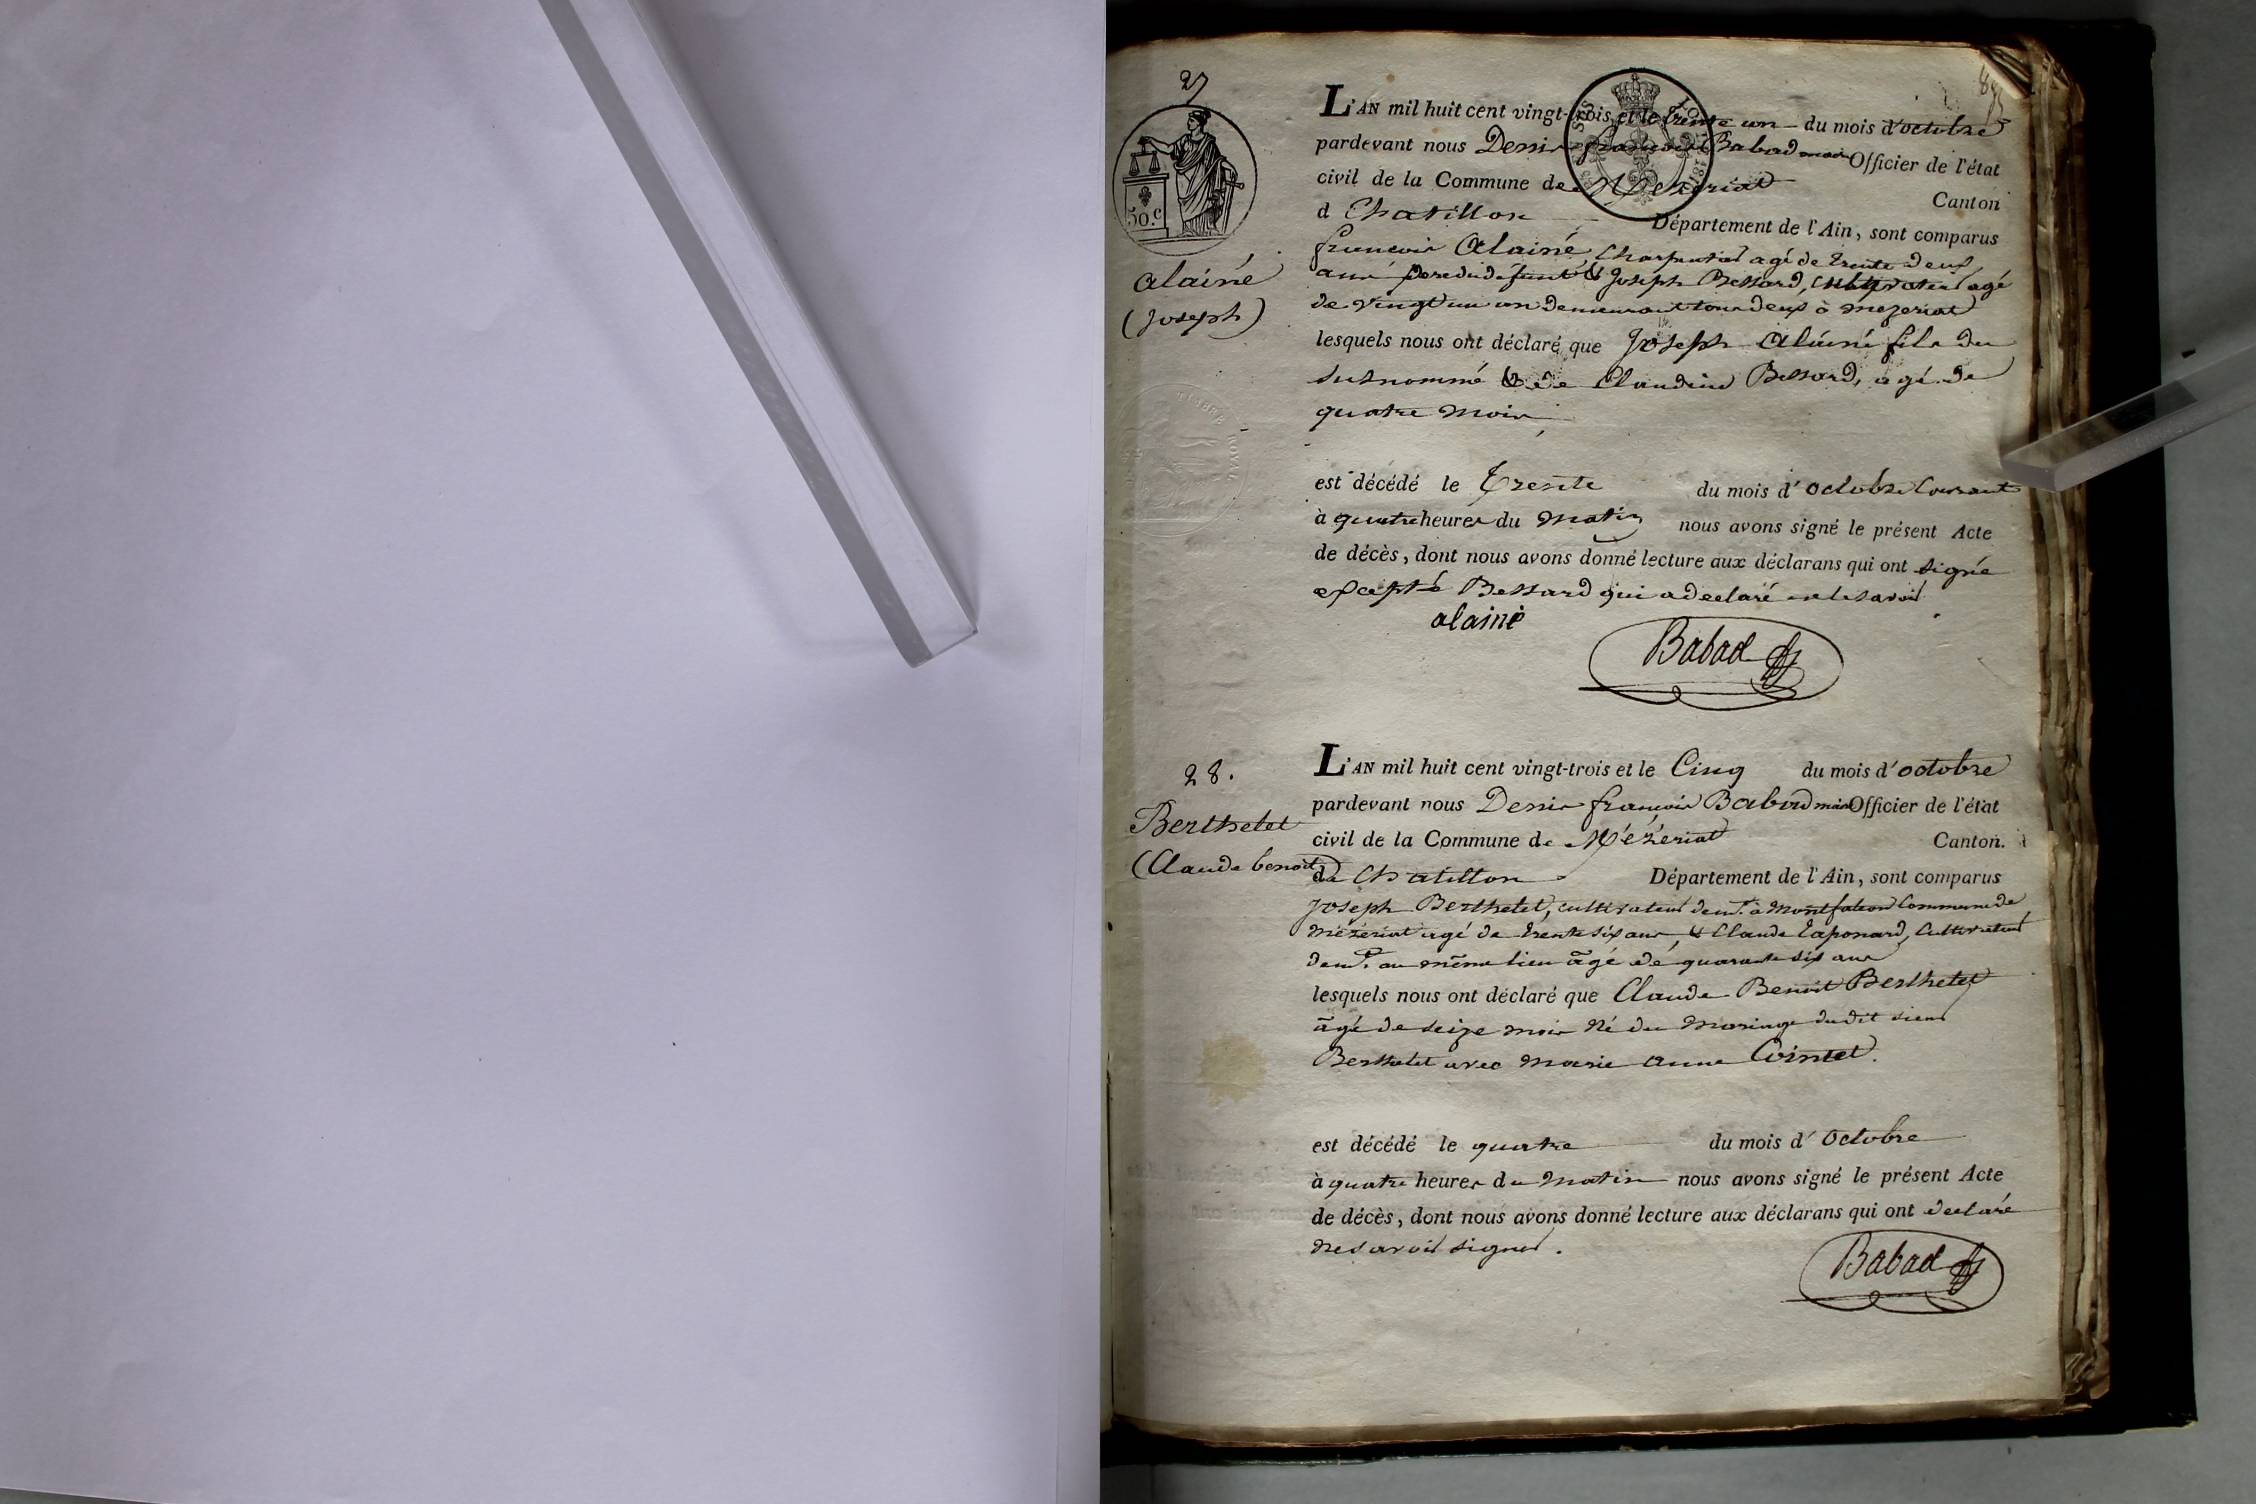 27
50.c
alainé
(joseph)
TIMBRE ROYAL
L'AN mil huit cent vingt-trois et le trente un du mois d'octobre
pardevant nous Denis françois Babad maire Officier de l'état
civil de la Commune de Mézériat Canton
d Chatillon Département de l'Ain, sont comparus
francois Alainé, Charpentier agé de trente deux
ans pere du défunt & Joseph Bessard, cultivateur agé
de vingt un an demeurant tous deux à mezeriat
lesquels nous ont déclaré que Joseph Alainé fils du
susnommé & de Claudine Bessard, agé de
quatre mois
est décédé le Trente du mois d'octobre Courant
à quatre heures du matin nous avons signé le présent Acte
de décès, dont nous avons donné lecture aux déclarans qui ont signée
excepté Bessard qui a declaré ne le savoir
alainé
Babad
28.
Berthelet
(Claude benoit)
L'AN mil huit cent vingt-trois et le Cinq du mois d'octobre
pardevant nous Denis françois Babad maire Officier de l'état
civil de la Commune de Mézériat Canton.
de Chatillon Département de l'Ain, sont comparus
Joseph Berthelet, cultivateur demt. à Montfalcon Commune de
mézériat agé de trente six ans, & Claude Taponard, Cultivateur
demt. au même lieu âgé de quarante six ans
lesquels nous ont déclaré que Claude Benoit Berthelet
âgé de seize mois né du mariage dudit sieur
Berthelet avec marie anne Cointet.
est décédé le quatre du mois d'Octobre
à quatre heures du matin nous avons signé le présent Acte
de décès, dont nous avons donné lecture aux déclarans qui ont declaré
ne savoir signer.
Babad